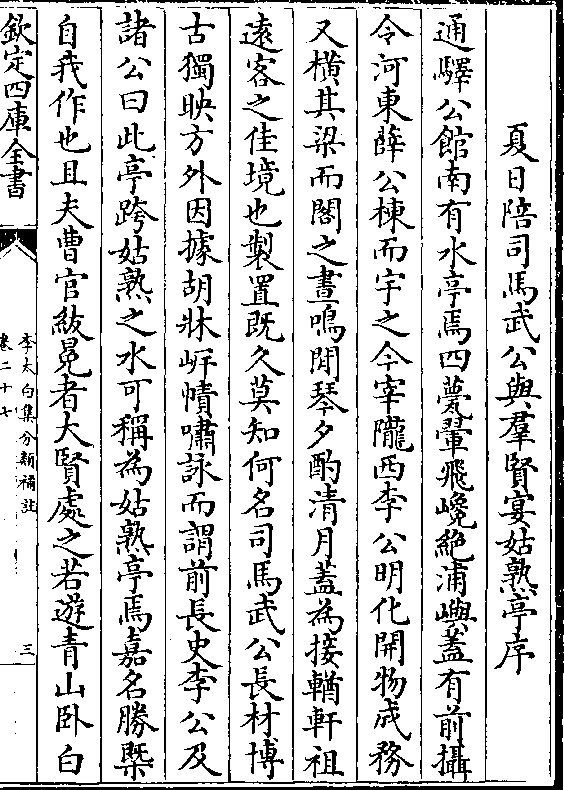 夏日陪司馬武公與羣賢宴姑熟亭序
通驛公館南有水亭焉四甍翬飛巉絶浦嶼蓋有前攝
令河東薛公棟而宇之今宰隴西李公明化開物成務
又横其梁而閣之晝鳴閒琴夕酌清月蓋為接輶軒祖
遠客之佳境也製置既久莫知何名司馬武公長材博
古獨映方外因據胡牀岸幘嘯詠而謂前長史李公及
諸公曰此亭跨姑熟之水可稱為姑熟亭焉嘉名勝槩
自我作也且夫曹官紱冕者大賢處之若遊青山卧白
欽定四庫全書
李太白集分類補註
卷二十七
三